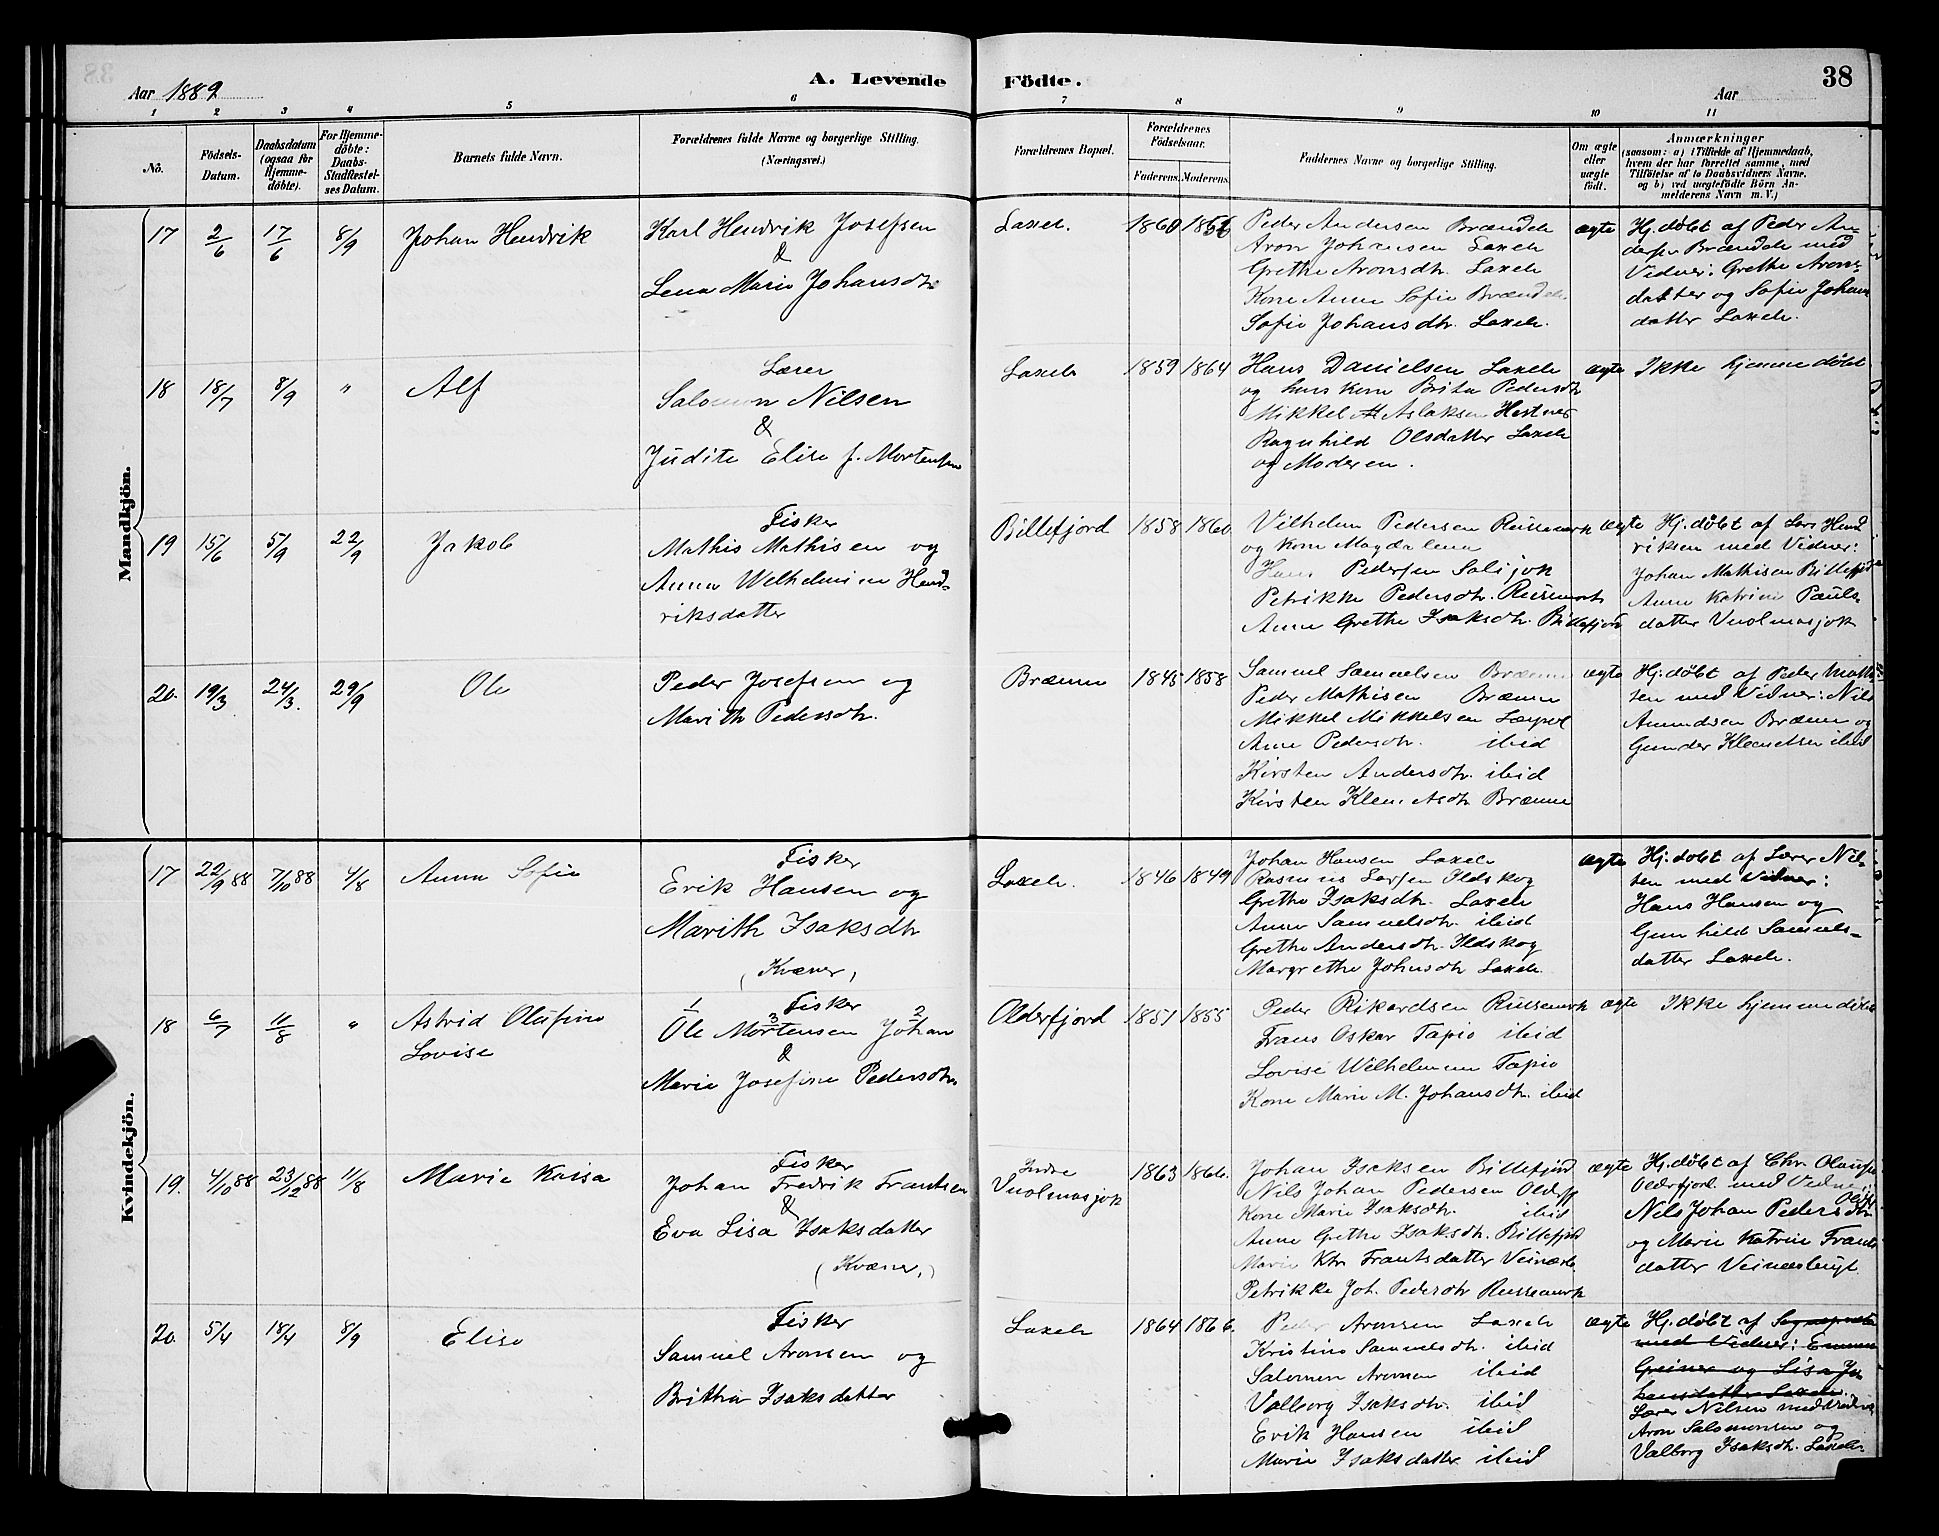 Aar 1889
A. Levende
Födte.
Aar
38
1 2 3 4 5 6 7 8 9 10 11
No.
Födsels-
Datum.
Daabsdatum
(ogsaa for
Hjemme-
döbte).
For Hjemme-
döbte:
Daabs-
Stadfæstel-
ses Datum.
Barnets fulde Navn.
Forældrenes fulde Navne og borgerlige Stilling.
(Næringsvei.)
Forældrenes Bopæl.
Forældrenes
Födselsaar.
Faderens. Moderens.
Faddernes Navne og borgerlige Stilling.
Om ægte
eller
uægte
födt.
Anmærkninger
(saasom: a) i Tilfælde af Hjemmedaab,
hvem der har forrettet samme, med
Tilföielse af to Daabsvidners Navne,
og b) ved uægtefödte Börn An-
melderens Navn m. V.)
Mandkjön.
17 2/6 17/6 8/9 Johan Hendrik
Karl Hendrik Josefsen
&
Lena Marie Johansdtr
Laxelv. 1860
Peder Andersen Brændelv
Aron Johansen Laxelv
Grethe Aronsdtr. Laxelv
Kone Anne Sofie Brændelv
Sofie Johansdtr. Laxelv.
ægte
Hj. døbt af Peder An-
dersen Brændelv med
Vidner: Grethe Arons-
datter og Sofie Johans
datter Laxelv.
18 18/7 8/9 " Alf
Lærer
Salomon Nilsen
&
Judite Elise f. Mortensen
Laxelv 1859 1864
Hans Danielsen Laxelv
og hans kone Brita Pedersdtr
Mikkel Aslaksen Hestnes
Ragnhild Olsdatter Laxelv
og Moderen.
ægte
Ikke hjemmedøbt
19 15/6 5/9 22/9 Jakob
Fisker
Mathis Mathisen og
Anna Wilhelmine Hend-
riksdatter
Billefjord 1858 1860
Vilhelm Pedersen Russemark
og kone Magdalena
Hans Pedersen Salsjok
Petrikke Pedersdtr. Russemark
Anne Grethe Isaksdtr. Billefjord
ægte
Hj. døbt af Lars Hend
riksen med Vidner:
Johan Mathisen Billefjord
Anne Katrine Pauls-
datter Vuolmasjok
20. 19/3 24/3. 29/9 Ole
Peder Josefsen og
Marith Pedersdtr.
Brænne 1845 1858
Samuel Samuelsen Brænne
Peder Mathisen Brænne
Mikkel Mikkelsen
Anne Pedersdtr. ibid
Kirsten Andersdtr. ibid
Kirsten Klemetsdtr Brænne
ægte
Hj. døbt af Peder Mathi
sen med Vidner: Nils
Amundsen Brænne og
Gunder Klemetsen ibid
Kvindekjön.
17 22/9 88 7/10 88 4/8 Anna Sofie
Fisker
Erik Hansen og
Marith Isaksdtr
(Kvæner)
Laxelv. 1846 1849
Johan Hansen Laxelv
Rasmus Larsen Ildskog
Grethe Isaksdtr. Laxelv
Anne Samuelsdtr. ibid
Grethe Andersdtr. Ildskog
Margrethe Johnsdtr Laxelv.
ægte
Hj. døbt af Lærer Nil-
sen med Vidner:
Hans Hansen og
Gunhild Samuels-
datter Laxelv.
18 6/7 11/8 " Astrid Olufine
Lovise
Fisker
1 3 2
Ole Mortensen Johan
&
Marie Josefine Pedersdtr.
Olderfjord 1851 1855
Peder Rikardsen Russemark
Frans Oskar Tapio ibid
Lovise Wilhelmine Tapio
Kone Marie M. Johansdtr. ibid
ægte
Ikke hjemmedøbt
19. 4/10 88 23/12 88 11/8 Marie Kaisa
Fisker
Johan Fredrik Frantsen
&
Eva Lisa Isaksdatter
(Kvæner.)
Indre
Vuolmasjok
1863 1866.
Johan Isaksen Billefjord
Nils Johan Pedersen Olderfj
Kone Marie Isaksdtr. ibid
Anne Grethe Isaksdtr. Billefjord
Marie Ktr. Frantsdatter Veinæsb.
Petrikke Joh. Pedersdtr Russemark
ægte
Hj. døbt af Chr. Olausen
Olderfjord med Vidner:
Nils Johan Pedersen Olderfj
og Marie Katrine Frants
datter Veinæsbugt
20. 5/4 18/4 8/9 Elise
Fisker
Samuel Aronsen og
Britha Isaksdatter
Laxelv 1864 1866.
Peder Aronsen Laxelv
Kristine Samuelsdtr. ibid
Salomon Aronsen ibid
Valborg Isaksdtr. ibid
Erik Hansen ibid
Marie Isaksdatter ibid
ægte
Hj. døbt af Sognepræsten
med Vidner: Emma
Greiner og Lisa Jo
hansdatter Laxelv.
Lærer Nilsen med Vidner
Aron Salomonsen og
Valborg Isaksdtr. Laxelv.